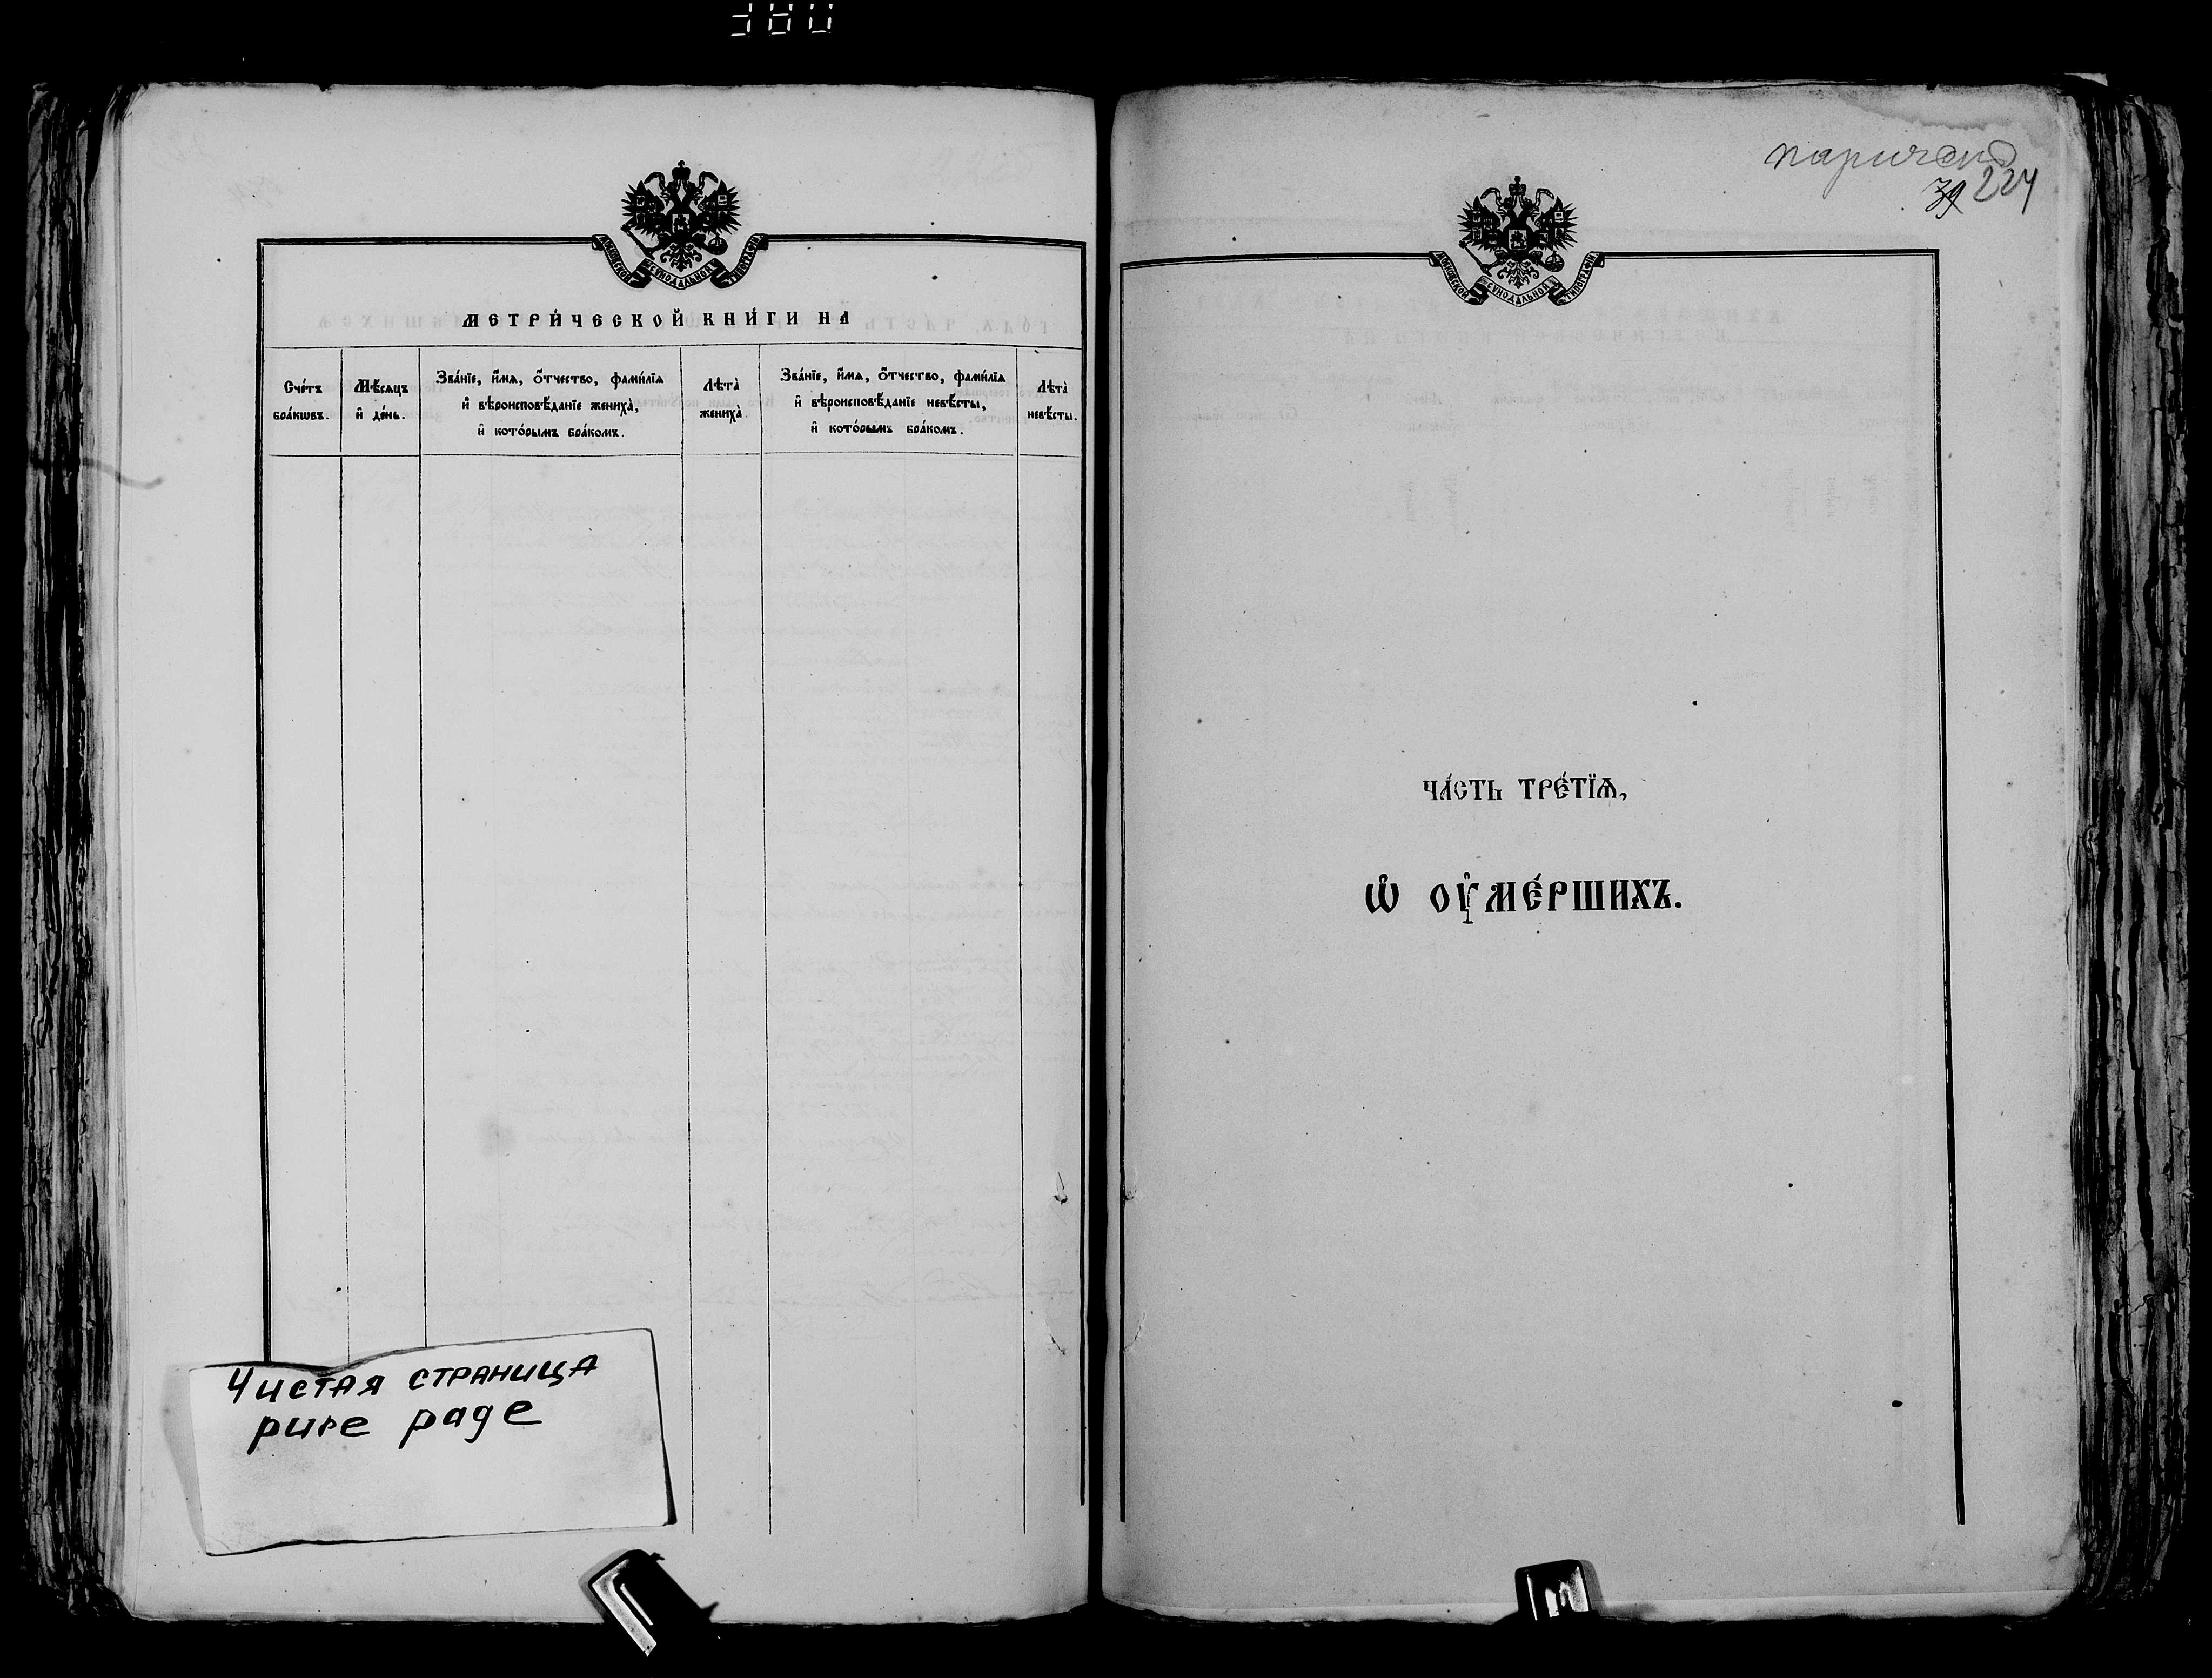 МОСКОВСКОЙ СѴНОДАЛЬНОЙ ТИПОГРАФІИ
МЕТРИ́ЧЕСКОЙ КНИ́ГИ НА
Сче́тъ бра́кѡвъ.
Мѣ́сяцъ и҆ де́нь.
Зва́нїе, и҆́мѧ, ѻ҆́тчество, фами́лїѧ
и҆ вѣроисповѣ́данїе жениха̀,
и҆ кото́рымъ бра́комъ.
Лѣта̀ жениха̀.
Зва́нїе, и҆́мѧ, ѻ҆́тчество, фами́лїѧ
и҆ вѣроисповѣ́данїе невѣ́сты,
и҆ кото́рымъ бра́комъ.
Лѣта̀ невѣ́сты.
Чистая страница
pure page
224
МОСКОВСКОЙ СѴНОДАЛЬНОЙ ТИПОГРАФІИ
ЧА́СТЬ ТРЕ́ТЇѦ,
Ѡ҆ ОУ҆МЕ́РШИХЪ.